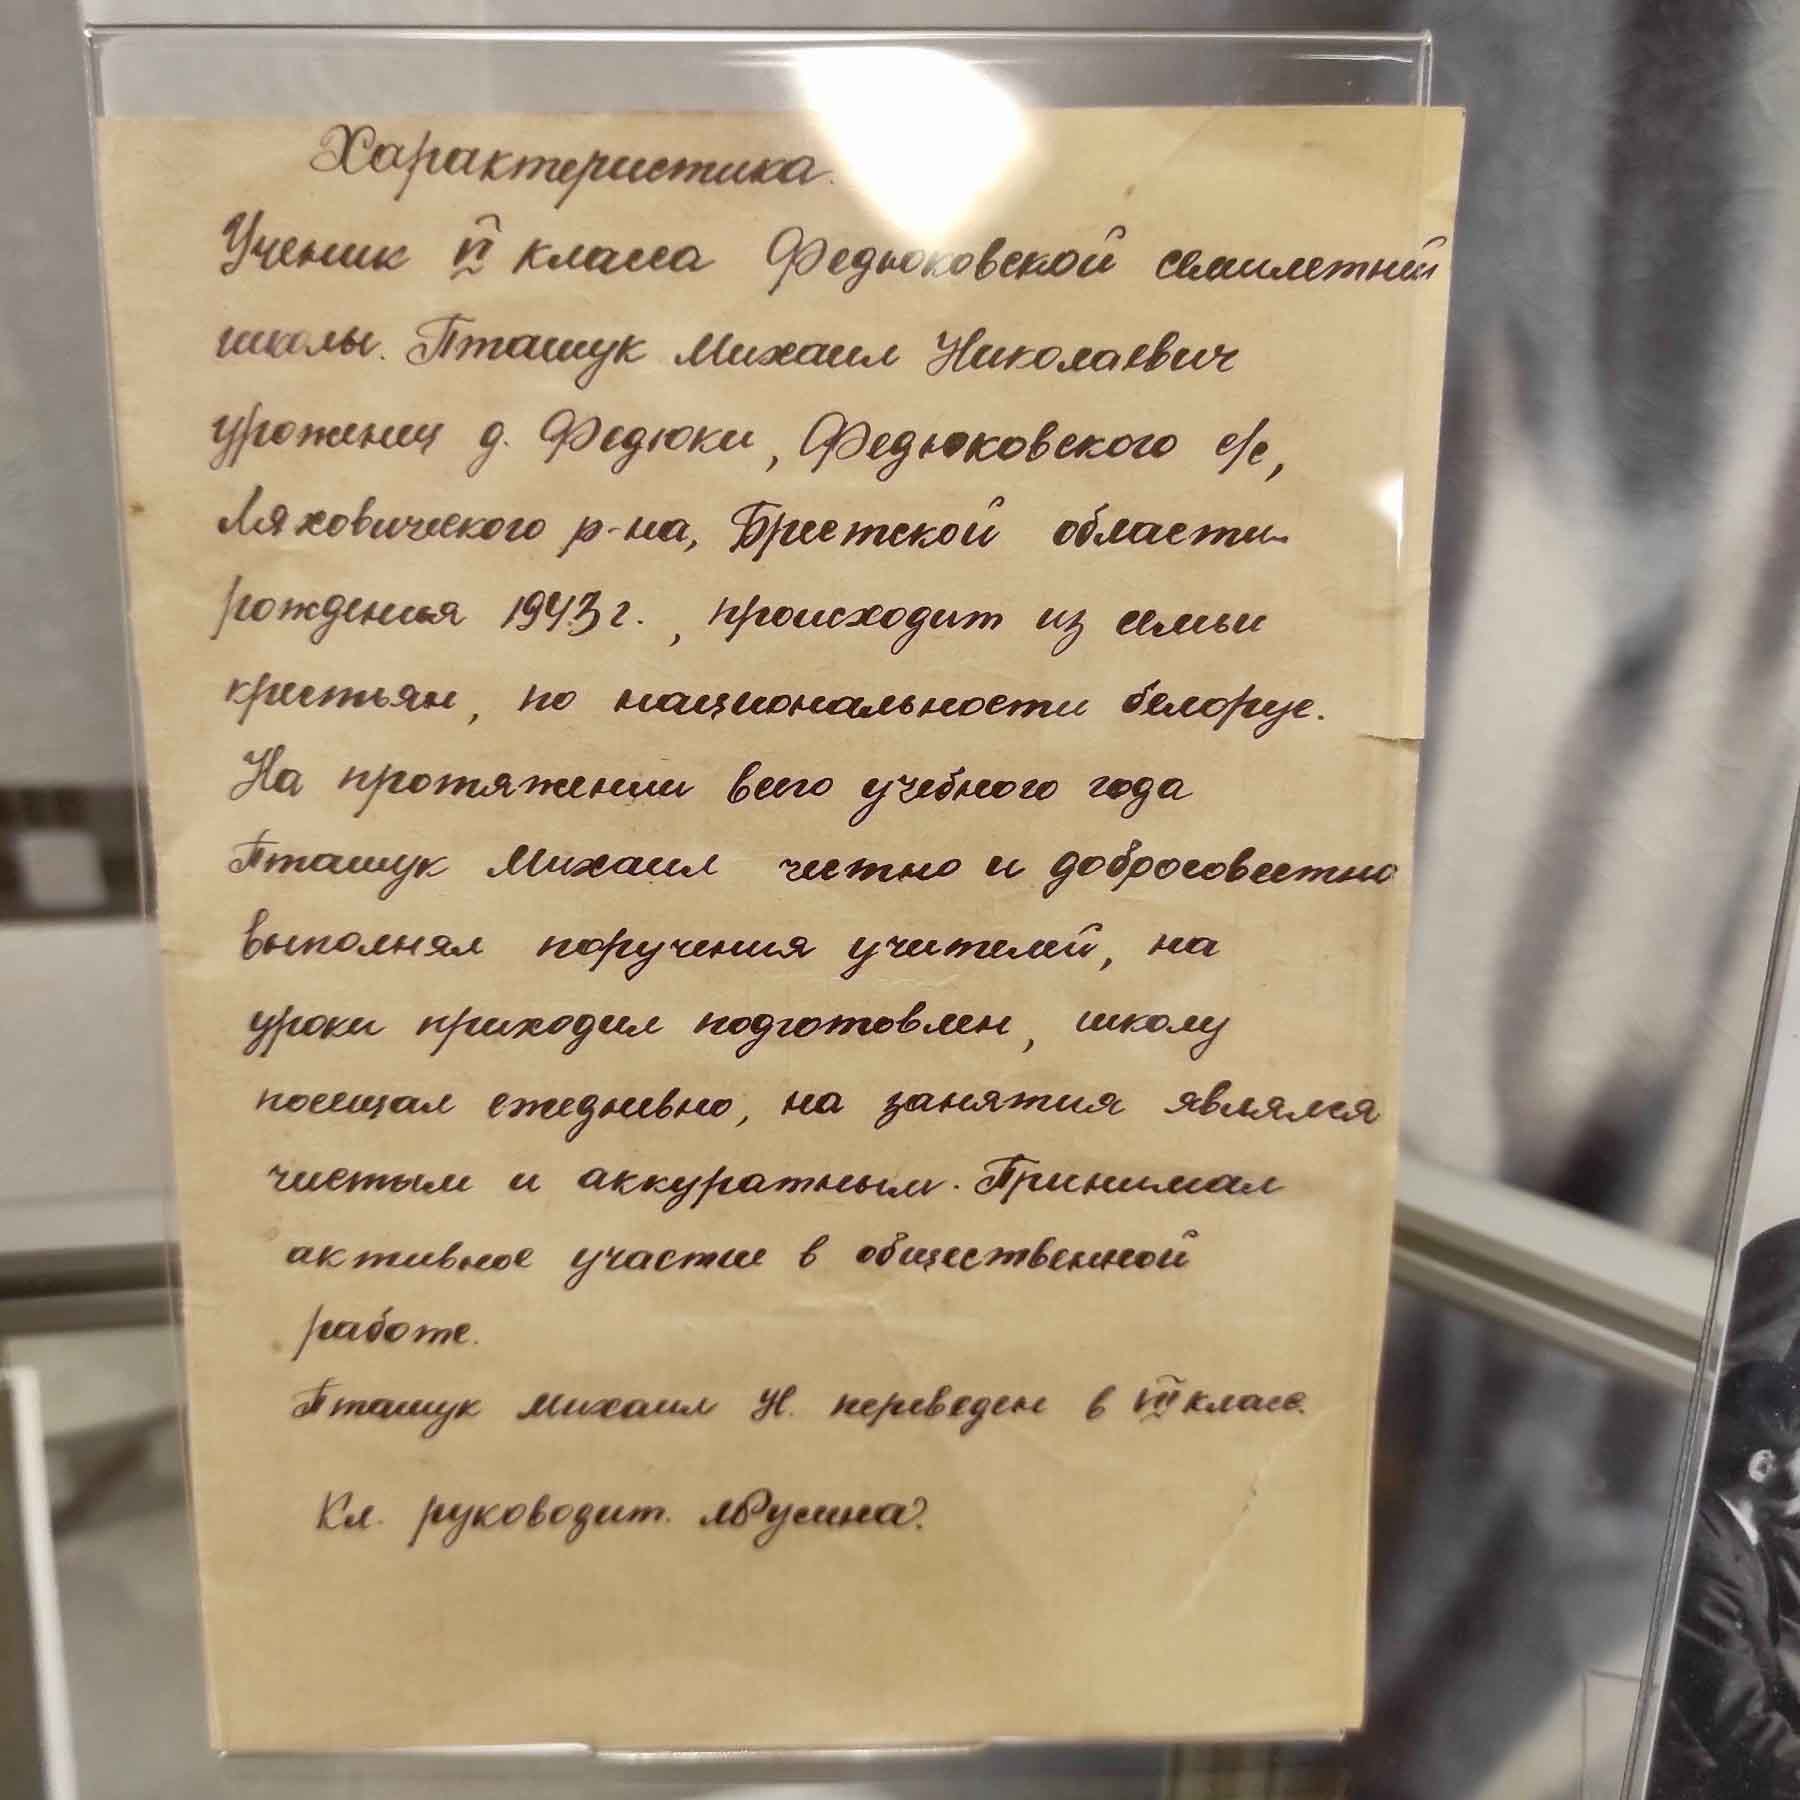 Характеристика.
Ученик VI класса Федюковской семилетний
школы. Пташук Михаил Николаевич
уроженец д. Федюки, Федюковского с/с,
Ляховического р-на, Брестской области
рождения 1943 г., происходит из семьи
крестьян, по национальности белорус.
На протяжении всего учебного года
Пташук Михаил честно и добросовестно
выполнял поручения учителей, на
уроки приходил подготовлен, школу
посещал ежедневно, на занятия являлся
чистым и аккуратным. Принимал
активное участие в общественной
работе.
Пташук Михаил Н. переведен в VII класс.
Кл. руководит. Русина